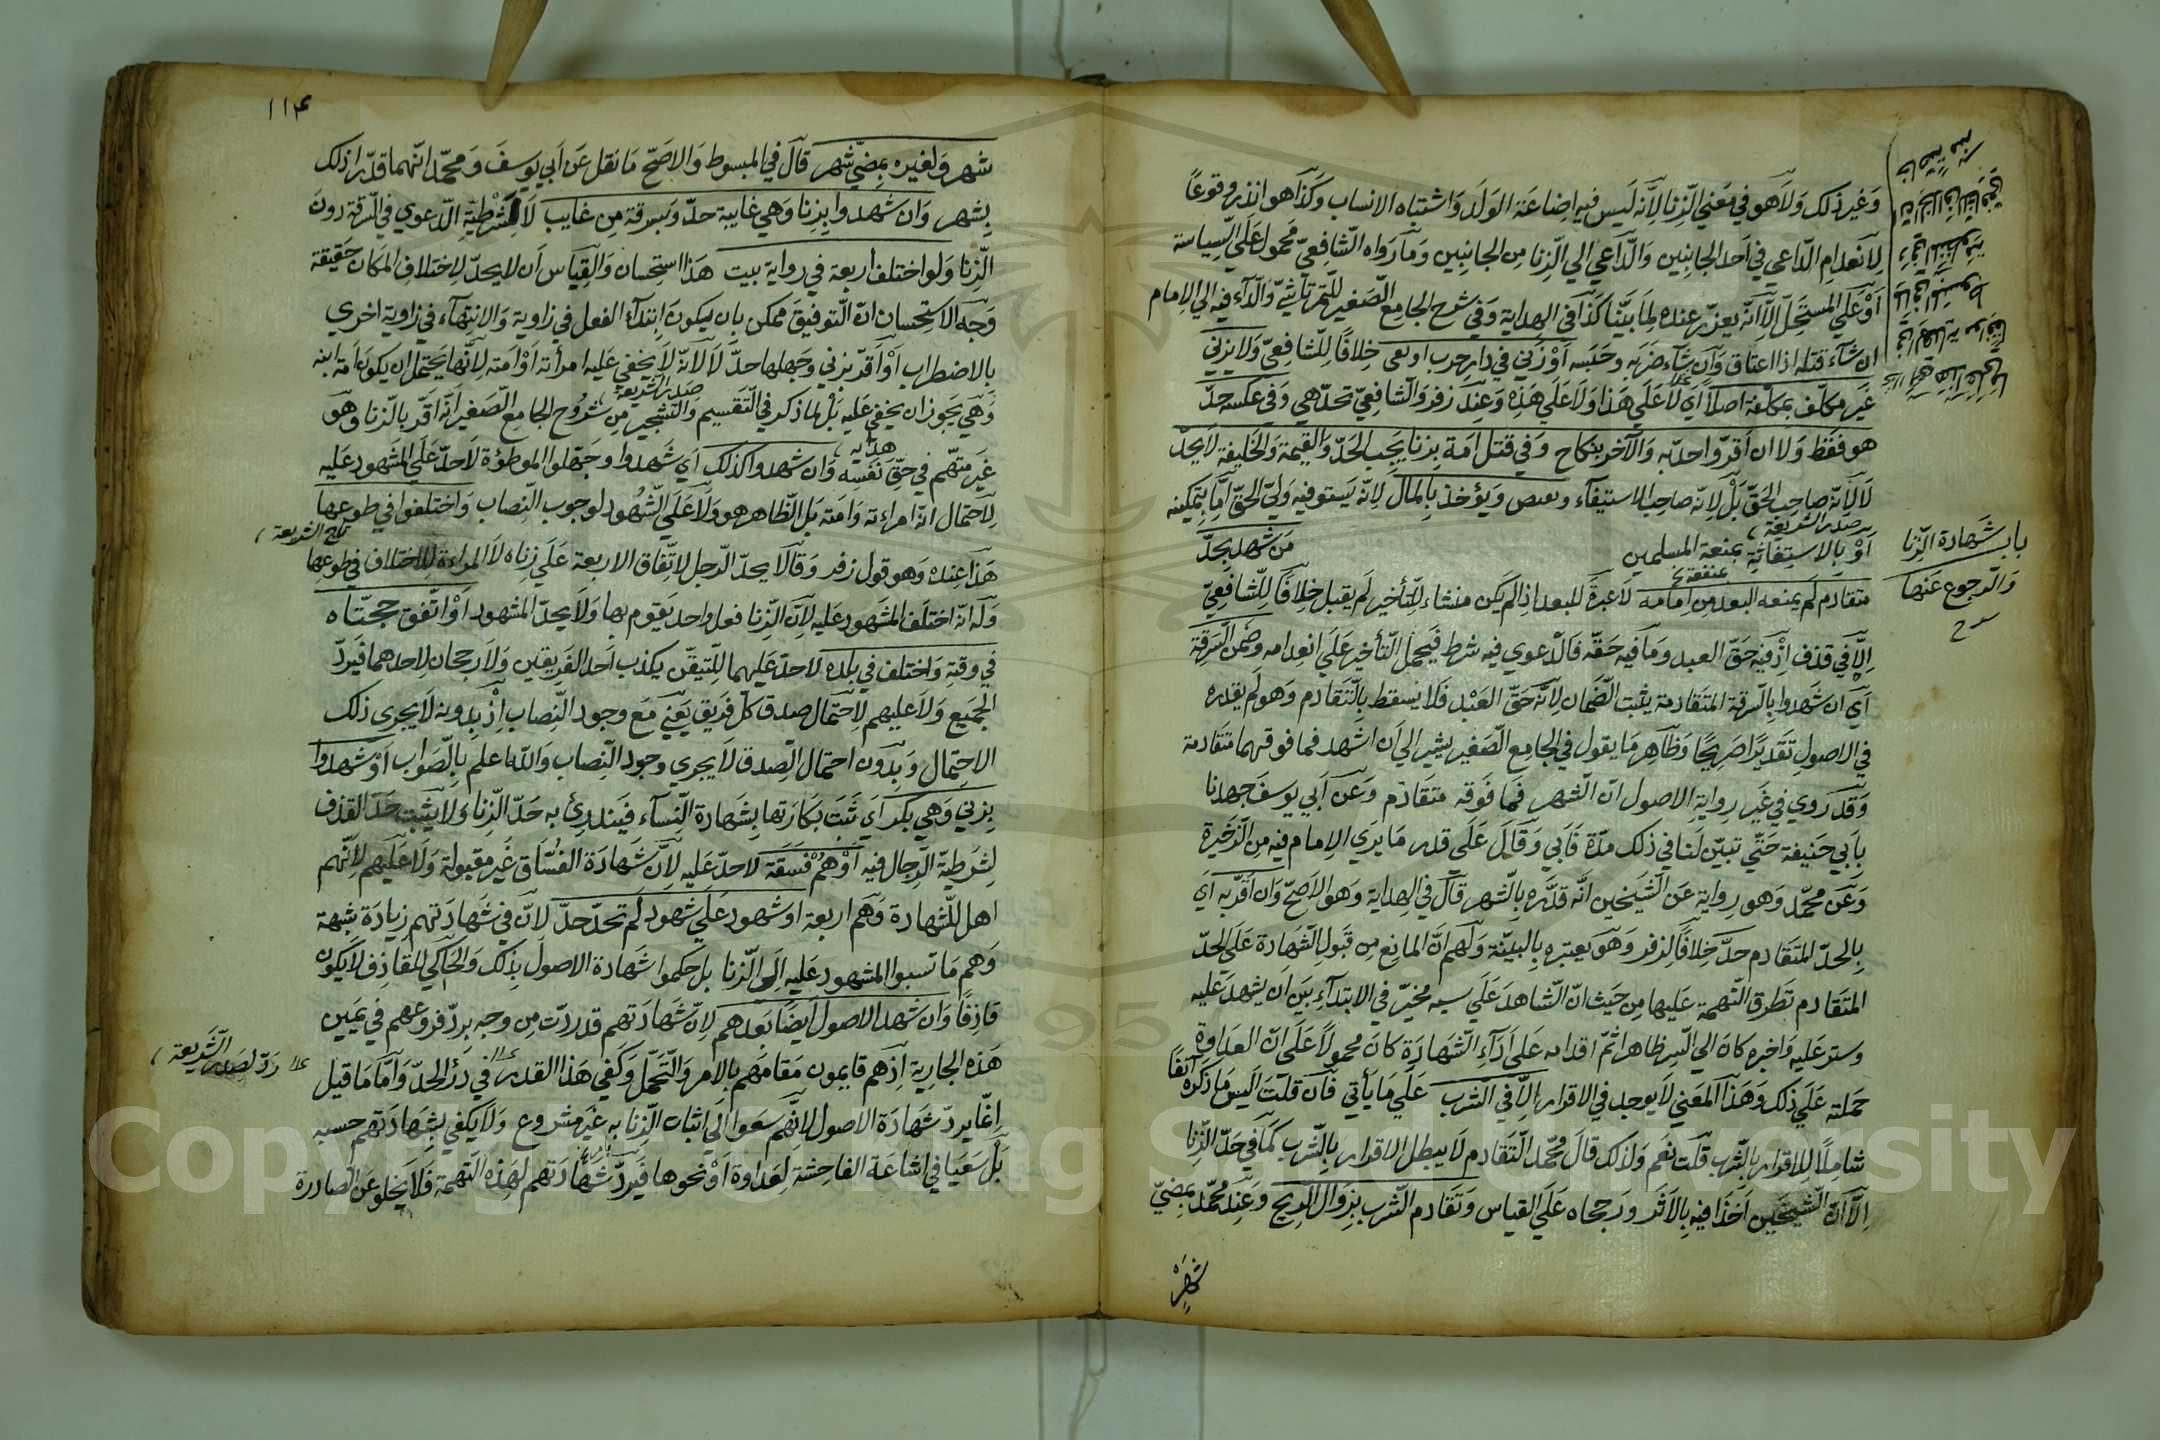 وغير ذلك ولا هو في معني الزنا لانه ليس فيه اضاعة الولد واشتباه الانساب وكذا هو اندر وقوعا
لانعدام الداعي في احد الجانبين والداعي الي الزنا من الجانبين وما رواه الشافعي محمول علي السياسة
او علي المستحل الا انه يعزر عنده لما بينا كذا في الهداية وفي شرح الجامع الصغير للتمرتاشي والداء فيه الي الامام
ان شاء قتله اذا اعتاق وان شاء ضربه وحبسه او زني في دار حرب او بغي خلافا للشافعي ولا يزني
غير مكلف بمكلفة اصلا اي لا علي هذا ولا علي هذه وعند زفر والشافعي تحد هي وفي عكسه حد
هو فقط ولا ان اقر واحد به والآخر بنكاح وفي قتل امة بزنا يجب الحد والقيمة والخليفة لا يحد
لا لانه صاحب الحق بل لانه صاحب الاستيفاء ويقتص ويؤخذ بالمال لانه يستوفيه ولي الحق اما بتمكينه
صدر الشريعة
او بالاستغاثة بمنعة المسلمين من شهد بحد
باب شهادة الزنا
والرجوع عنها
متقادم لم يمنعه البعد من امامه لا عبرة للبعد اذا لم يكن منشاء للتأخير لم يقبل خلافا للشافعي
الا في قذف اذ فيه حق العبد وما فيه حقه فالدعوي فيه شرط فيحمل التأخير علي انعدامه وضمن السرقة
اي ان شهدوا بالسرقة المتقادمة يثبت الضمان لانه حق العبد فلا يسقط بالتقادم وهو لم يقدره
في الاصول تقديرا صريحا وظاهر ما يقول في الجامع الصغير يشير الي ان اشهد فما فوقهما متقادمة
وقد روي في غير رواية الاصول ان الشهر فما فوقه متقادم وعن ابي يوسف جهدنا
بابي حنيفة حتي تبين لنا في ذلك مدة فابي وقال علي قدر ما يري الامام فيه من الذخيرة
وعن محمد وهو رواية عن الشيخين انه قدره بالشهر قال في الهداية وهو الاصح وان اقر به اي
بالحد المتقادم حد خلافا لزفر وهو يعتبره بالبينة ولهم ان المانع من قبول الشهادة علي الحد
المتقادم تطرق التهمة عليها من حيث ان الشاهد علي سببه مخير في الابتداء بين ان يشهد عليه
وستر عليه واخره كان الي الستر ظاهرا ثم اقدامه علي اداء الشهادة كان محمولا علي ان العداوة
حملته علي ذلك وهذا المعني لا يوجد في الاقرار الا في الشرب علي ما يأتي فان قلت اليس ما ذكره آنفا
شاملا للاقرار بالشرب قلت نعم ولذلك قال محمد التقادم لا يبطل الاقرار بالشرب كما في حد الزنا
الا ان الشيخين اخذا فيه بالاثر ورجحاه علي القياس وتقادم الشرب بزوال الريح وعند محمد بمضي
شهر
١١٤
شهر ولغيره بمضي شهر قال في المبسوط والاصح ما نقل عن ابي يوسف ومحمد انهما قدرا ذلك
بشهر وان شهدوا بزنا وهي غايبة حد وبسرقة من غايب لا لشرطية الدعوي في السرقة دون
الزنا ولو اختلف اربعة في رواية بيت هذا استحسان والقياس ان لا يحد لاختلاف المكان حقيقة
وجه الاستحسان ان التوفيق ممكن بان يكون ابتداء الفعل في زاوية والانتهاء في زاوية اخري
بالاضطراب او اقر بزني وجهلها حد لا لانه لا يخفي عليه امرأته او امته لانها يحتمل ان يكون امة ابنه
صدر الشريعة
وهي يجوز ان يخفي عليه بل لما ذكر في التقسيم والتشجير من شروح الجامع الصغير انه اقر بالزنا وهو
هدايه
غير متهم في حق نفسه وان شهدوا كذلك اي شهدوا وجهلوا الموطؤة لا حد علي المشهود عليه
لاحتمال انها امراءته وامته بل الظاهر هو ولا علي الشهود لوجوب النصاب واختلفوا في طوعها
تاج الشريعة
هذا عنده وهو قول زفر وقالا يحد الرجل لاتفاق الاربعة علي زناه لا المراءة للاختلاف في طوعها
وله انه اختلف المشهود عليه لان الزنا فعل واحد يقوم بهما ولا يحد الشهود او اتفق حجتاه
في وقته واختلف في بلده لا حد عليهما للتيقن بكذب احد الفريقين ولا رجحان لاحدهما فيرد
الجميع ولا عليهم لاحتمال صدق كل فريق يعني مع وجود النصاب اذ بدونه لا يجري ذلك
الاحتمال وبدون احتمال الصدق لا يجري وجود النصاب والله اعلم بالصواب او شهدوا
بزني وهي بكر اي ثبت بكارتها بشهادة النساء فيندرئ به حد الزنا ولا يثبت حد القذف
لشرطية الرجال فيه او هم فسقة لا حد عليه لان شهادة الفساق غير مقبولة ولا عليهم لانهم
اهل للشهادة وهم اربعة او شهود علي شهود لم تحد حد لان في شهادتهم زيادة شبهة
وهم ما نسبوا المشهود عليه الي الزنا بل حكموا شهادة الاصول بذلك والحاكي للقاذف لا يكون
قاذفا وان شهد الاصول ايضا بعدهم لان شهادتهم قد ردت من وجه برد فروعهم في عين
رد لصدر الشريعة
هذه الجارية اذ هم قايمون مقامهم بالامر والتحمل وكفي هذا القدر في درء الحد واما ما قيل
انما يرد شهادة الاصول لانهم سعوا الي اثبات الزنا به غير مشروع ولا يكفي بشهادتهم حسبه
بل سعيا في اشاعة الفاحشة لعداوة او نحوها فيرد شهادتهم لهذه التهمة فلا يخلو عن المصادرة